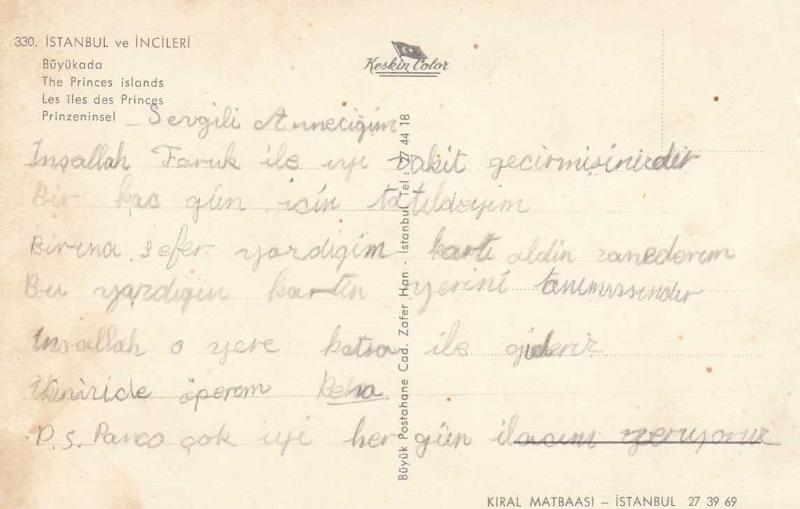 330. İSTANBUL ve İNCİLERİ
Büyükada
The Princes islands
Les îles des Princes
Prinzeninsel
Keskin Color
Sevgili Anneciğim
İnşallah Faruk ile iyi vakit geçirmişinizdir
Bir kaç gün için tatildeyim
Birina sefer yazdığim kartı aldin zanederem
Bu yazdığın kartın yerini tanımışsındır
İnşallah o yere ile gideriz
İkinizide öperem Reha
P.S. Panço çok iyi her gün ilacını veriyoruz
Büyük Postahane Cad. Zafer Han - İstanbul Tel : 27 44 18
KIRAL MATBAASI – İSTANBUL 27 39 69